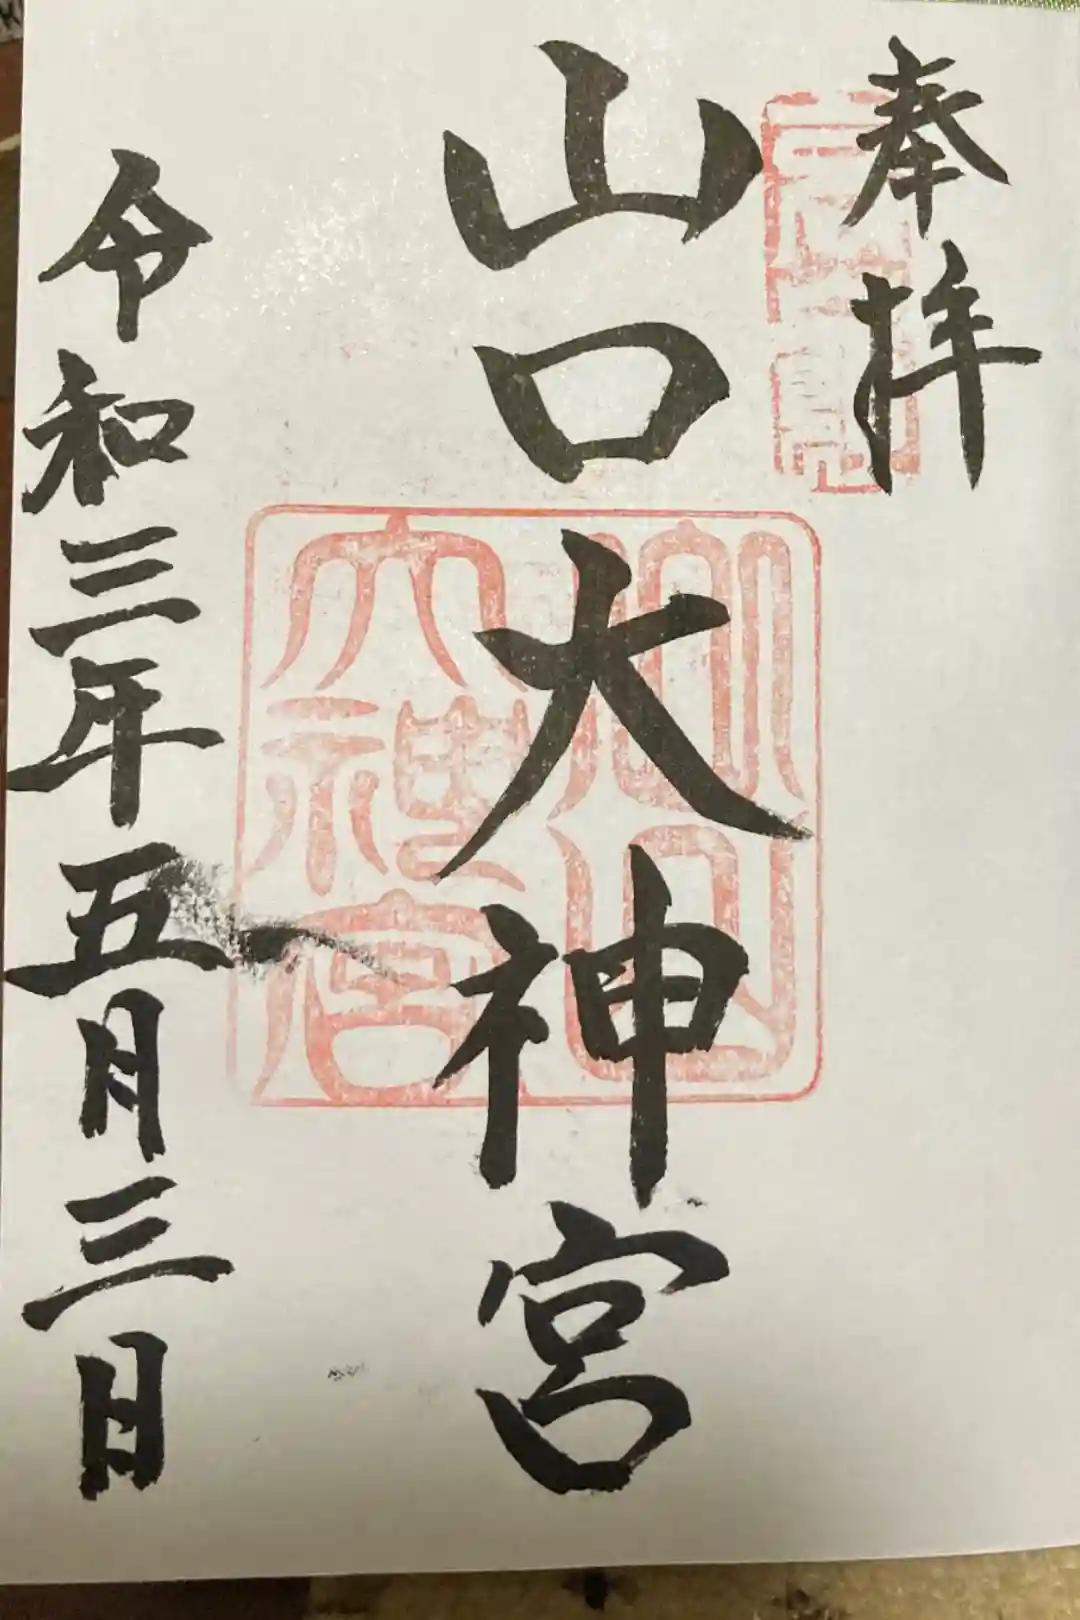 奉拝
山口大神宮
令和三年五月三日
山口大神宮